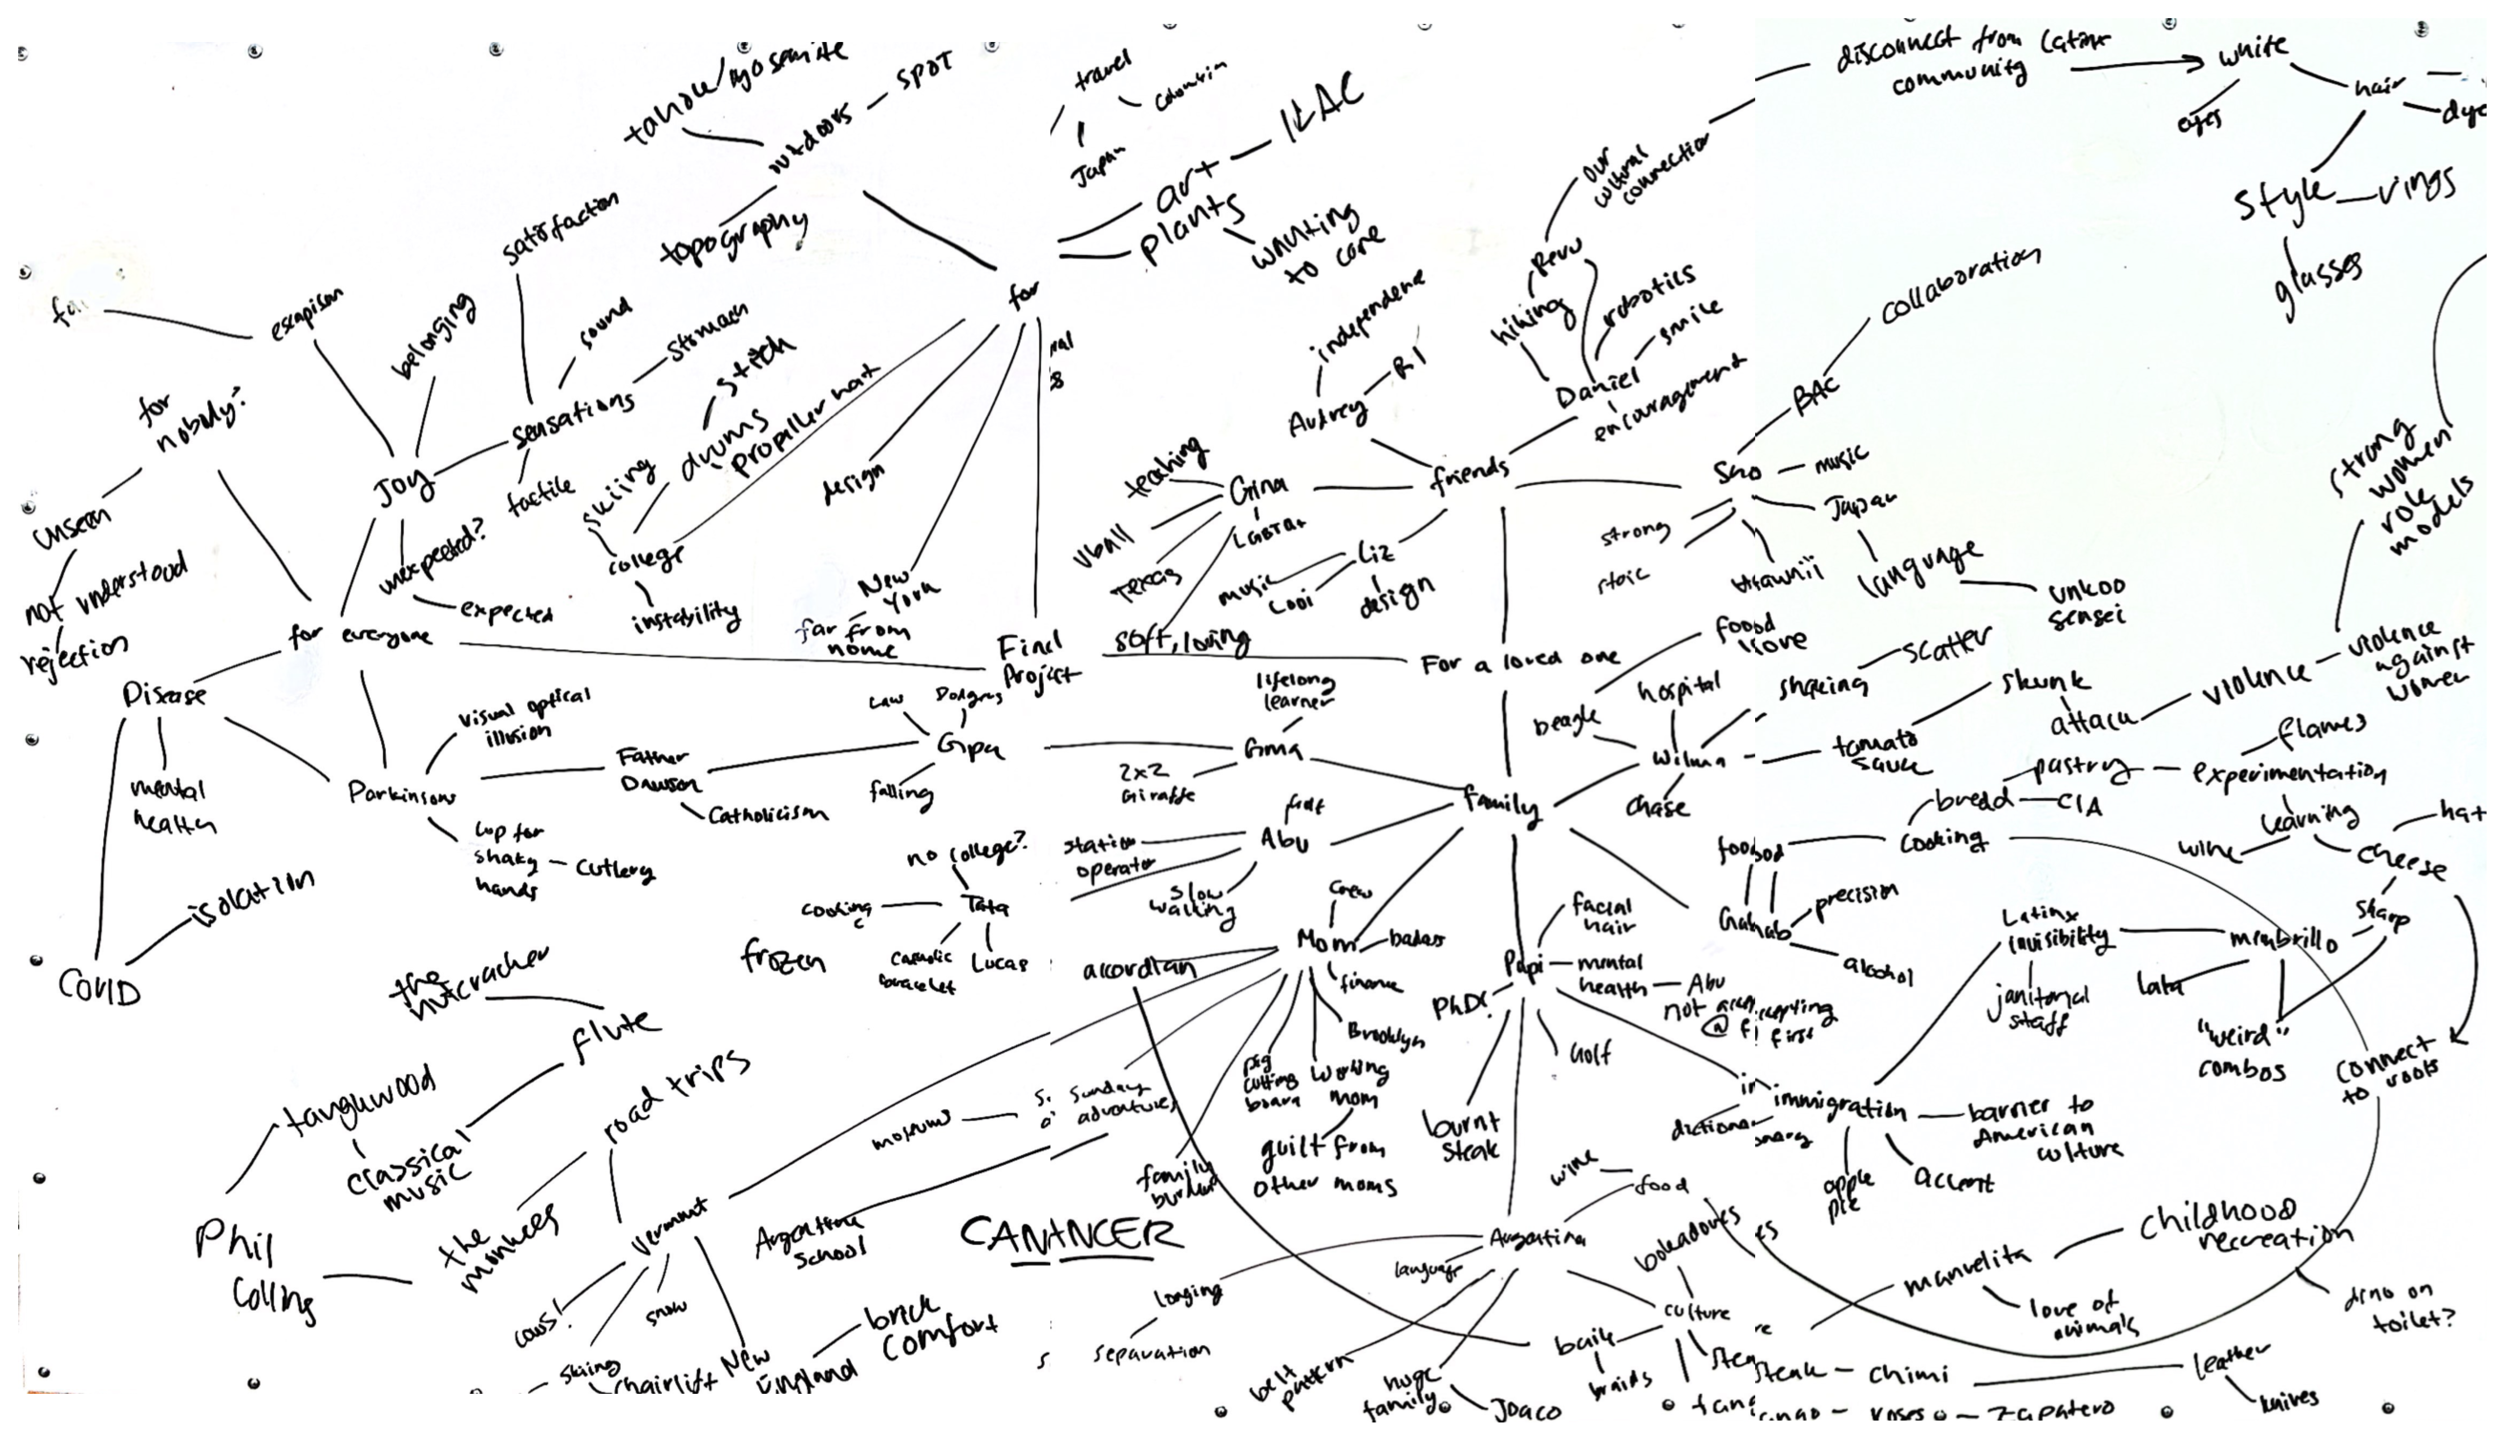 tahoe/yosemite
SPOT
outdoors
topography
travel
Japan
art
ILAC
plants
wanting
to care
for
disconnect from Latinx
community
white
eyes
hair
style
rings
glasses
our
cultural
connection
Peru
hiking
robotics
smile
Daniel
encouragement
independence
Audrey
RI
collaboration
BAC
music
Japan
language
unkoo
sensei
strong
stoic
friends
Gina
teaching
vball
Texas
soft, loving
Liz
music
design
escapism
belonging
satisfaction
sound
stomach
sensations
tactile
Joy
unexpected?
expected
for
nobody?
unseen
not understood
rejection
for everyone
stitch
drums
skiing
college
instability
design
New
York
far from
home
Final
Project
For a loved one
Disease
mental
health
COVID
isolation
Parkinsons
visual optical
illusion
cup for
shaky
hands
cutlery
Father
Dawson
Catholicism
Gipa
Law
Dodgers
falling
Gma
lifelong
learner
2x2
Giraffe
family
Wilma
beagle
foood
love
hospital
shaking
scatter
chase
tomato
sauce
skunk
attack
violence
violence
against
women
strong
women
role
models
Abu
golf
station
operator
slow
walking
Tata
no college?
cooking
frozen
Catholic
bracelet
Lucas
Mom
crew
badass
finance
Brooklyn
working
mom
guilt from
other moms
pig
cutting
board
family
accordian
Sunday
adventures
museums
Argentine
school
Papi
facial
hair
mental
health
Abu
PhD!
golf
burnt
steak
precision
alcohol
cooking
bread
CIA
pastry
experimentation
flames
learning
wine
cheese
hat
sharp
membrillo
lata
"weird"
combos
connect
to roots
Latinx
invisibility
janitorial
staff
immigration
barrier to
American
culture
accent
apple
pie
Argentina
wine
food
language
longing
separation
belt
pattern
huge
family
Joaco
culture
boleadores
baile
braids
steak
chimi
leather
knives
zapatero
manuelita
love of
animals
childhood
recreation
dino on
toilet?
the
nutcracker
flute
tanglewood
classical
music
Phil
Collins
road trips
the
monkees
Vermont
cows!
snow
skiing
chairlift
New
England
brick
comfort